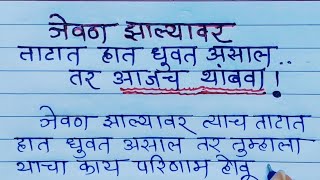 जेवण झाल्यावर
ताटात हात धुवत असाल..
तर आजच थांबवा!
जेवण झाल्यावर त्याच ताटात
हात धुवत असाल तर तुम्हाला
याचा काय परिणाम होवू